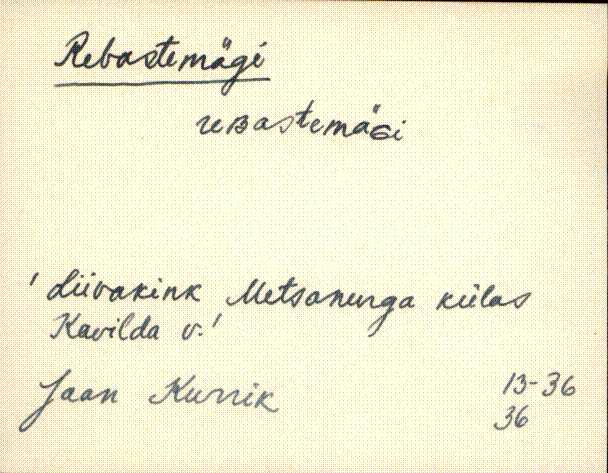 Rebastemägi
reʙastemäɢi
' Liivakink Metsanurga külas
Kavilda v.'
Jaan Kurrik
13-36
36